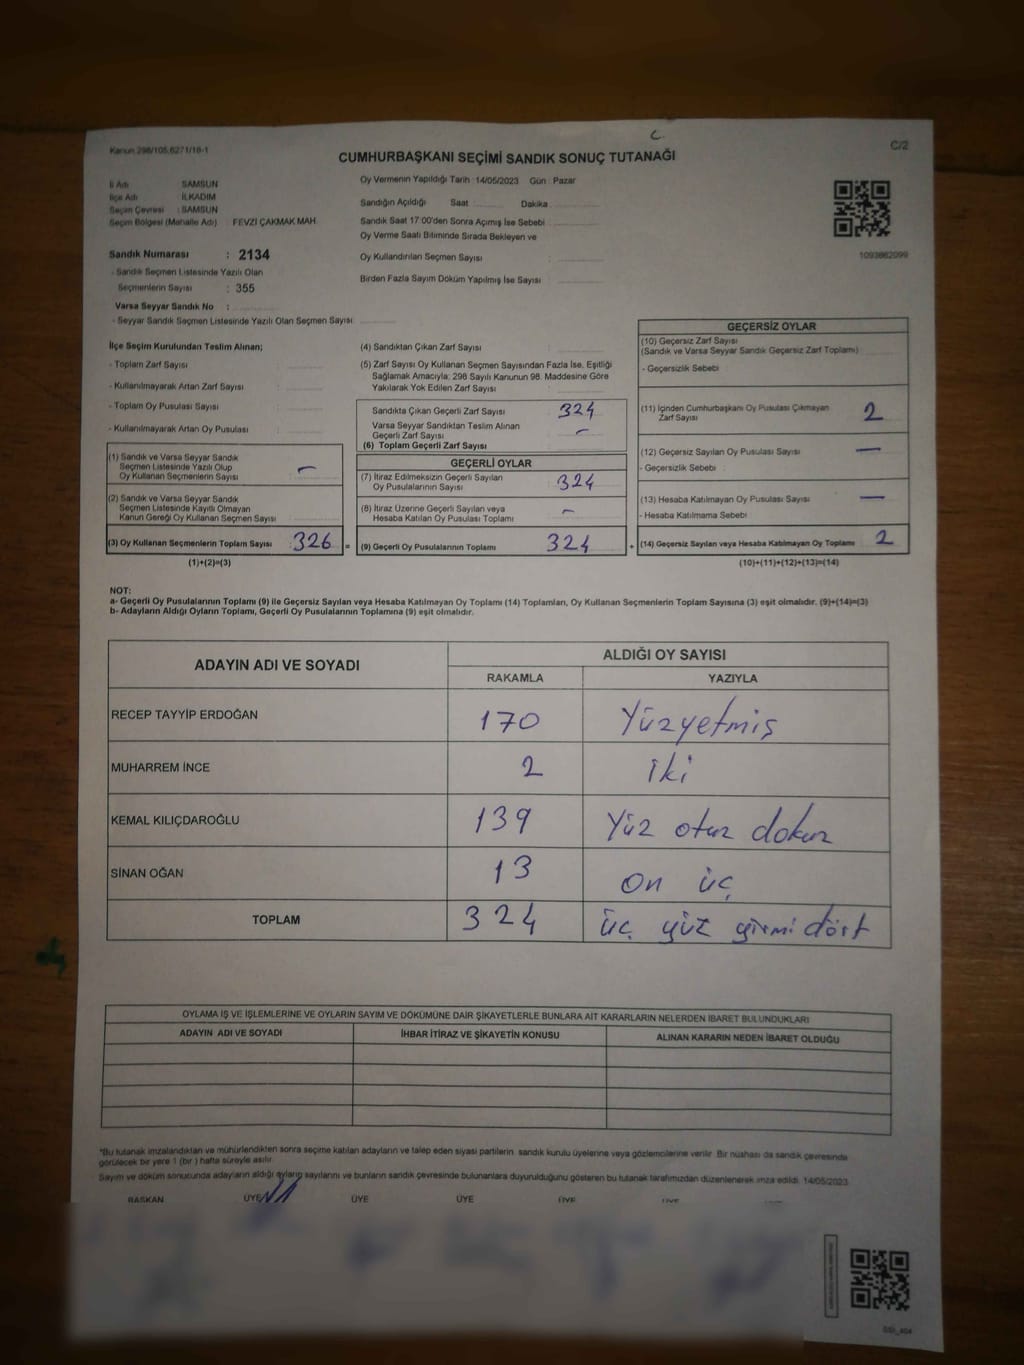 Kanun 298/105,6271/18-1
C.
C/2
CUMHURBAŞKANI SEÇİMİ SANDIK SONUÇ TUTANAĞI
İl Adı : SAMSUN
İlçe Adı : İLKADIM
Seçim Çevresi : SAMSUN
Seçim Bölgesi (Mahalle Adı) : FEVZİ ÇAKMAK MAH.
Sandık Numarası : 2134
- Sandık Seçmen Listesinde Yazılı Olan
Seçmenlerin Sayısı : 355
Varsa Seyyar Sandık No :
- Seyyar Sandık Seçmen Listesinde Yazılı Olan Seçmen Sayısı
Oy Vermenin Yapıldığı Tarih : 14/05/2023 Gün : Pazar
Sandığın Açıldığı Saat Dakika
Sandık Saat 17:00'den Sonra Açımış İse Sebebi
Oy Verme Saati Bitiminde Sırada Bekleyen ve
Oy Kullandırılan Seçmen Sayısı :
Birden Fazla Sayım Döküm Yapılmış İse Sayısı :
1093862099
İlçe Seçim Kurulundan Teslim Alınan;
- Toplam Zarf Sayısı :
- Kullanılmayarak Artan Zarf Sayısı :
- Toplam Oy Pusulası Sayısı :
- Kullanılmayarak Artan Oy Pusulası :
(1) Sandık ve Varsa Seyyar Sandık
Seçmen Listesinde Yazılı Olup
Oy Kullanan Seçmenlerin Sayısı : –
(2) Sandık ve Varsa Seyyar Sandık
Seçmen Listesinde Kayıtlı Olmayan
Kanun Gereği Oy Kullanan Seçmen Sayısı :
(3) Oy Kullanan Seçmenlerin Toplam Sayısı : 326
(1)+(2)=(3)
(4) Sandıktan Çıkan Zarf Sayısı :
(5) Zarf Sayısı Oy Kullanan Seçmen Sayısından Fazla İse, Eşitliği
Sağlamak Amacıyla; 298 Sayılı Kanunun 98. Maddesine Göre
Yakılarak Yok Edilen Zarf Sayısı :
Sandıkta Çıkan Geçerli Zarf Sayısı : 324
Varsa Seyyar Sandıktan Teslim Alınan
Geçerli Zarf Sayısı : –
(6) Toplam Geçerli Zarf Sayısı
GEÇERLİ OYLAR
(7) İtiraz Edilmeksizin Geçerli Sayılan
Oy Pusulalarının Sayısı : 324
(8) İtiraz Üzerine Geçerli Sayılan veya
Hesaba Katılan Oy Pusulası Toplamı : –
= (9) Geçerli Oy Pusulalarının Toplamı 324
GEÇERSİZ OYLAR
(10) Geçersiz Zarf Sayısı
(Sandık ve Varsa Seyyar Sandık Geçersiz Zarf Toplamı)
- Geçersizlik Sebebi
(11) İçinden Cumhurbaşkanı Oy Pusulası Çıkmayan
Zarf Sayısı 2
(12) Geçersiz Sayılan Oy Pusulası Sayısı —
- Geçersizlik Sebebi :
(13) Hesaba Katılmayan Oy Pusulası Sayısı —
- Hesaba Katılmama Sebebi
+ (14) Geçersiz Sayılan veya Hesaba Katılmayan Oy Toplamı 2
(10)+(11)+(12)+(13)=(14)
NOT:
a- Geçerli Oy Pusulalarının Toplamı (9) ile Geçersiz Sayılan veya Hesaba Katılmayan Oy Toplamı (14) Toplamları, Oy Kullanan Seçmenlerin Toplam Sayısına (3) eşit olmalıdır. (9)+(14)=(3)
b- Adayların Aldığı Oyların Toplamı, Geçerli Oy Pusulalarının Toplamına (9) eşit olmalıdır.
ADAYIN ADI VE SOYADI
ALDIĞI OY SAYISI
RAKAMLA YAZIYLA
RECEP TAYYİP ERDOĞAN 170 Yüzyetmiş
MUHARREM İNCE 2 iki
KEMAL KILIÇDAROĞLU 139 Yüz otuz dokuz
SİNAN OĞAN 13 on üç
TOPLAM 324 üç yüz yirmi dört
OYLAMA İŞ VE İŞLEMLERİNE VE OYLARIN SAYIM VE DÖKÜMÜNE DAİR ŞİKAYETLERLE BUNLARA AİT KARARLARIN NELERDEN İBARET BULUNDUKLARI
ADAYIN ADI VE SOYADI İHBAR İTİRAZ VE ŞİKAYETİN KONUSU ALINAN KARARIN NEDEN İBARET OLDUĞU
*Bu tutanak imzalandıktan ve mühürlendikten sonra seçime katılan adayların ve talep eden siyasi partilerin sandık kurulu üyelerine veya gözlemcilerine verilir. Bir nüshası da sandık çevresinde
görülecek bir yere 1 (bir) hafta süreyle asılır.
Sayım ve döküm sonucunda adayların aldığı oyların sayılarını ve bunların sandık çevresinde bulunanlara duyurulduğunu gösteren bu tutanak tarafımızdan düzenlenerek imza edildi. 14/05/2023
BAŞKAN ÜYE ÜYE ÜYE ÜYE ÜYE